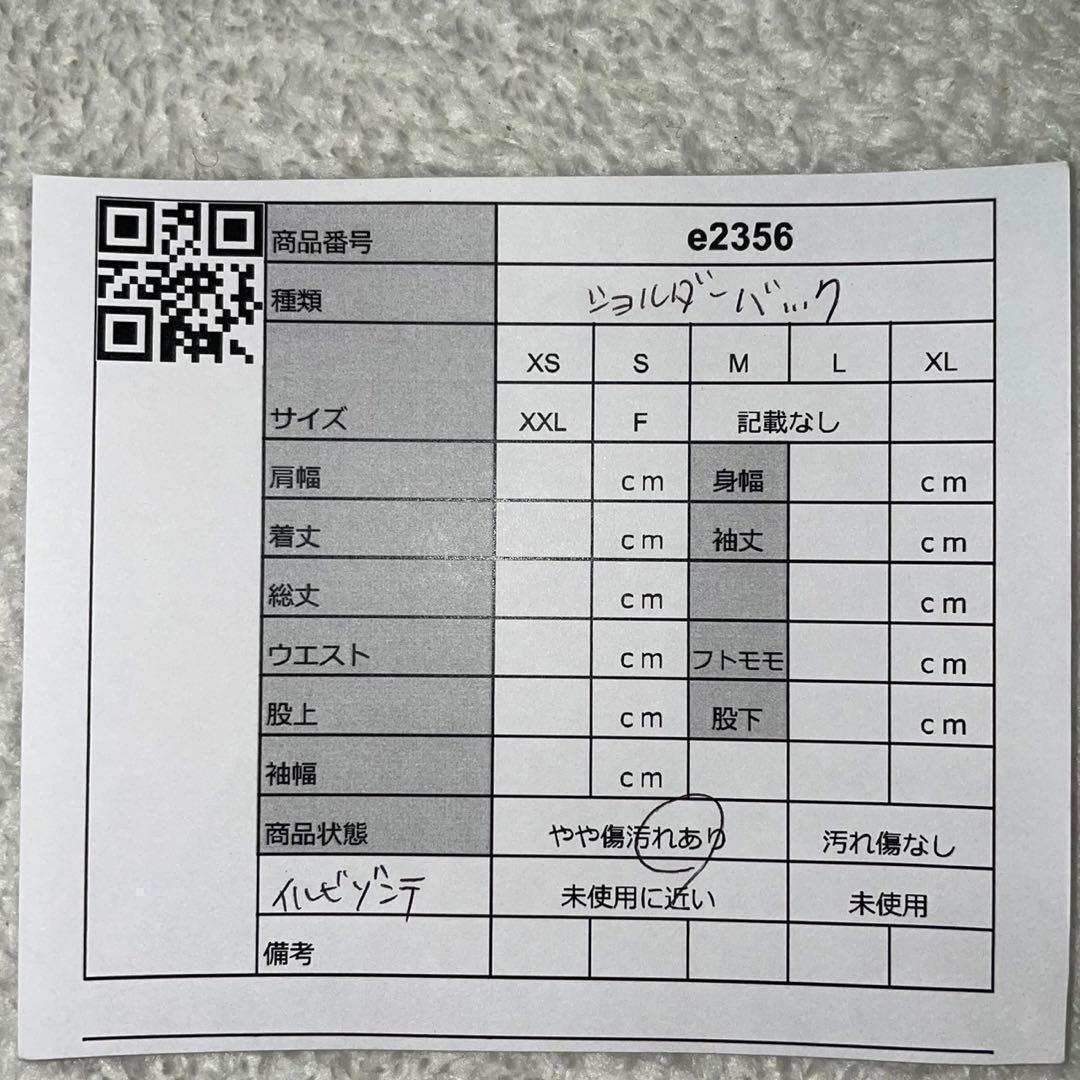 商品番号 e2356
種類 ショルダーバック
XS S M L XL
サイズ XXL F 記載なし
肩幅 cm 身幅 cm
着丈 cm 袖丈 cm
総丈 cm cm
ウエスト cm フトモモ cm
股上 cm 股下 cm
袖幅 cm
商品状態 やや傷汚れあり 汚れ傷なし
イルビゾンテ 未使用に近い 未使用
備考